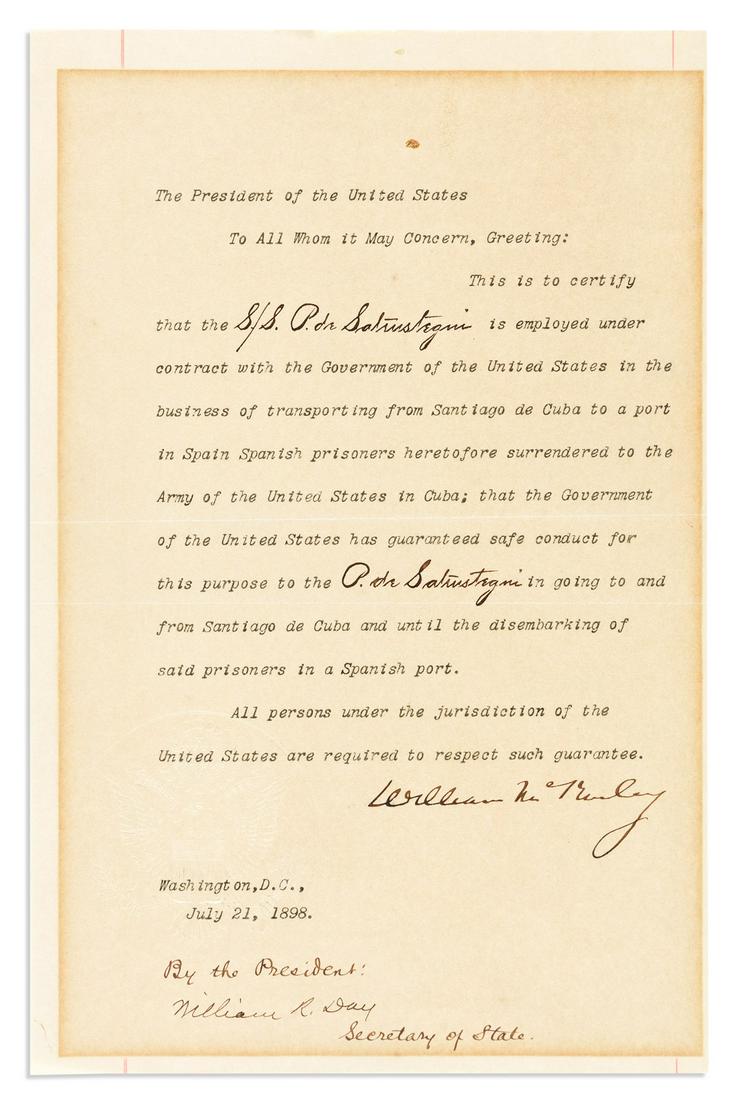 The President of the United States
To All Whom it May Concern, Greeting:
This is to certify
that the S/S. P. de Satrustegui is employed under
contract with the Government of the United States in the
business of transporting from Santiago de Cuba to a port
in Spain Spanish prisoners heretofore surrendered to the
Army of the United States in Cuba; that the Government
of the United States has guaranteed safe conduct for
this purpose to the P. de Satrustegui in going to and
from Santiago de Cuba and until the disembarking of
said prisoners in a Spanish port.
All persons under the jurisdiction of the
United States are required to respect such guarantee.
William McKinley
Washington,D.C.,
July 21, 1898.
By the President:
William R. Day
Secretary of State.